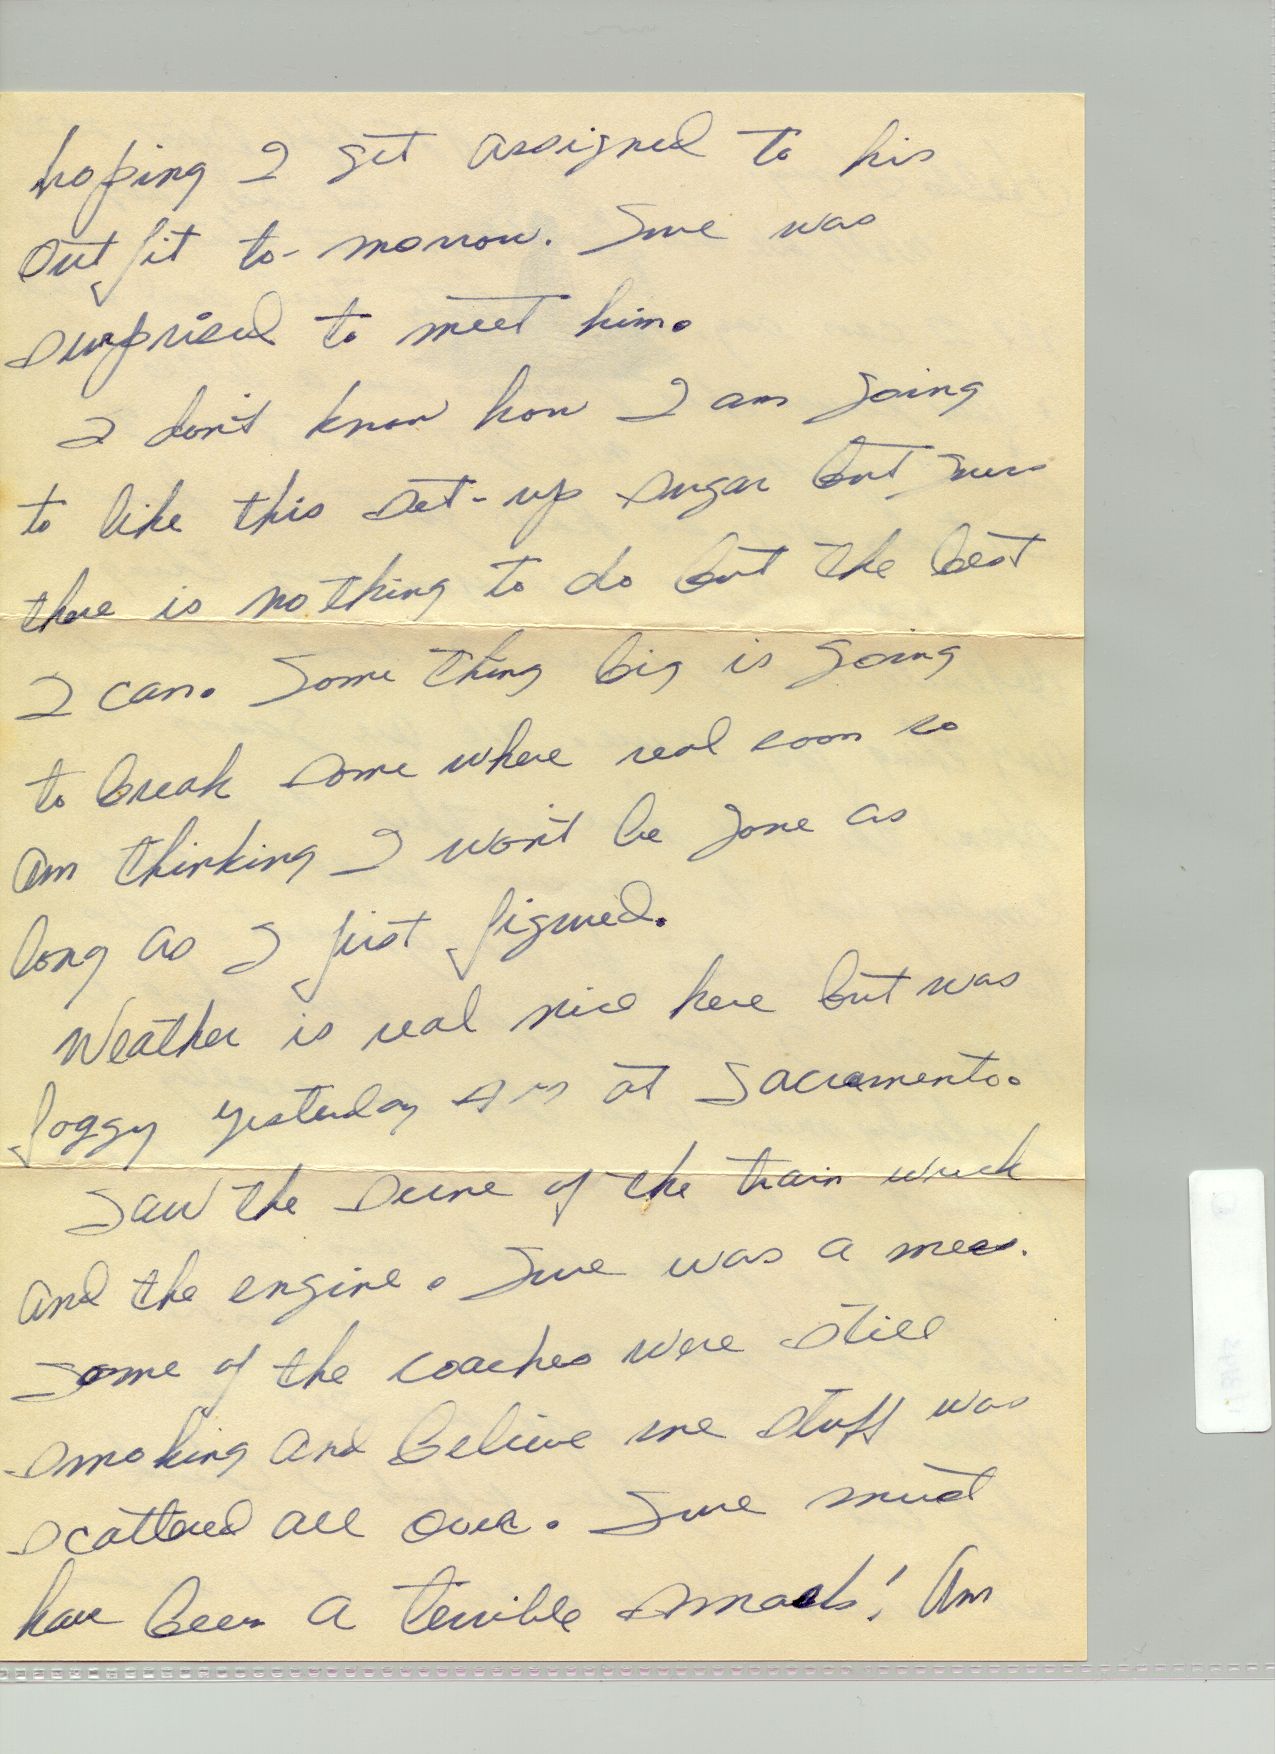 hoping I get assigned to his
outfit to-morrow. Sure was
surprised to meet him.
I don't know how I am going
to like this set-up sugar but guess
there is nothing to do but the best
I can. Some thing big is going
to break some where real soon so
am thinking I won't be gone as
long as I first figured.
Weather is real nice here but was
foggy yesterday AM at Sacramento.
Saw the scene of the train wreck
and the engine. Sure was a mess.
Some of the coaches were still
smoking and believe me stuff was
scattered all over. Sure must
have been a terrible smash! Am